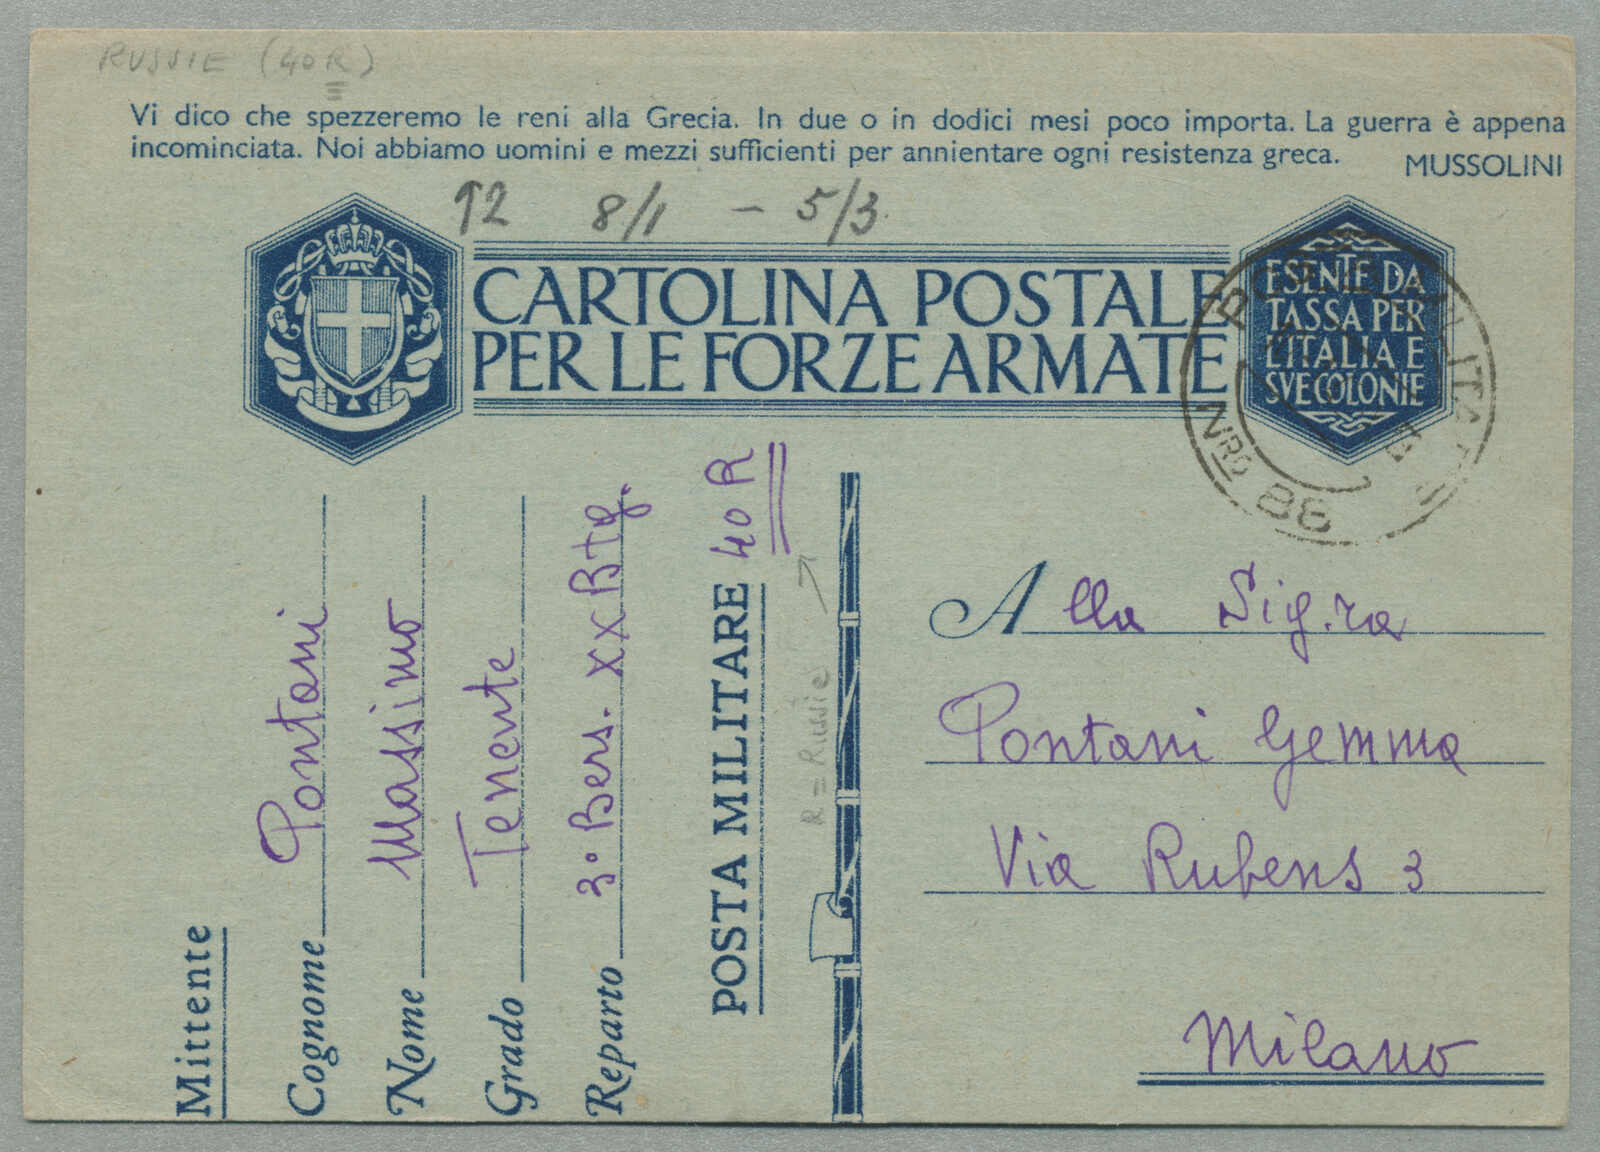 RUSSIE (40R)
Vi dico che spezzeremo le reni alla Grecia. In due o in dodici mesi poco importa. La guerra è appena
incominciata. Noi abbiamo uomini e mezzi sufficienti per annientare ogni resistenza greca. MUSSOLINI
12 8/1 - 5/3
CARTOLINA POSTALE
PER LE FORZE ARMATE
ESENTE DA
TASSA PER
L'ITALIA E
SVE COLONIE
NRO 88
Mittente
Cognome Pontani
Nome Massimo
Grado Tenente
Reparto 3° Bers. XX Btg.
POSTA MILITARE 40 R
R = Russie
Alla Sig.ra
Pontani Gemma
Via Rubens 3
Milano